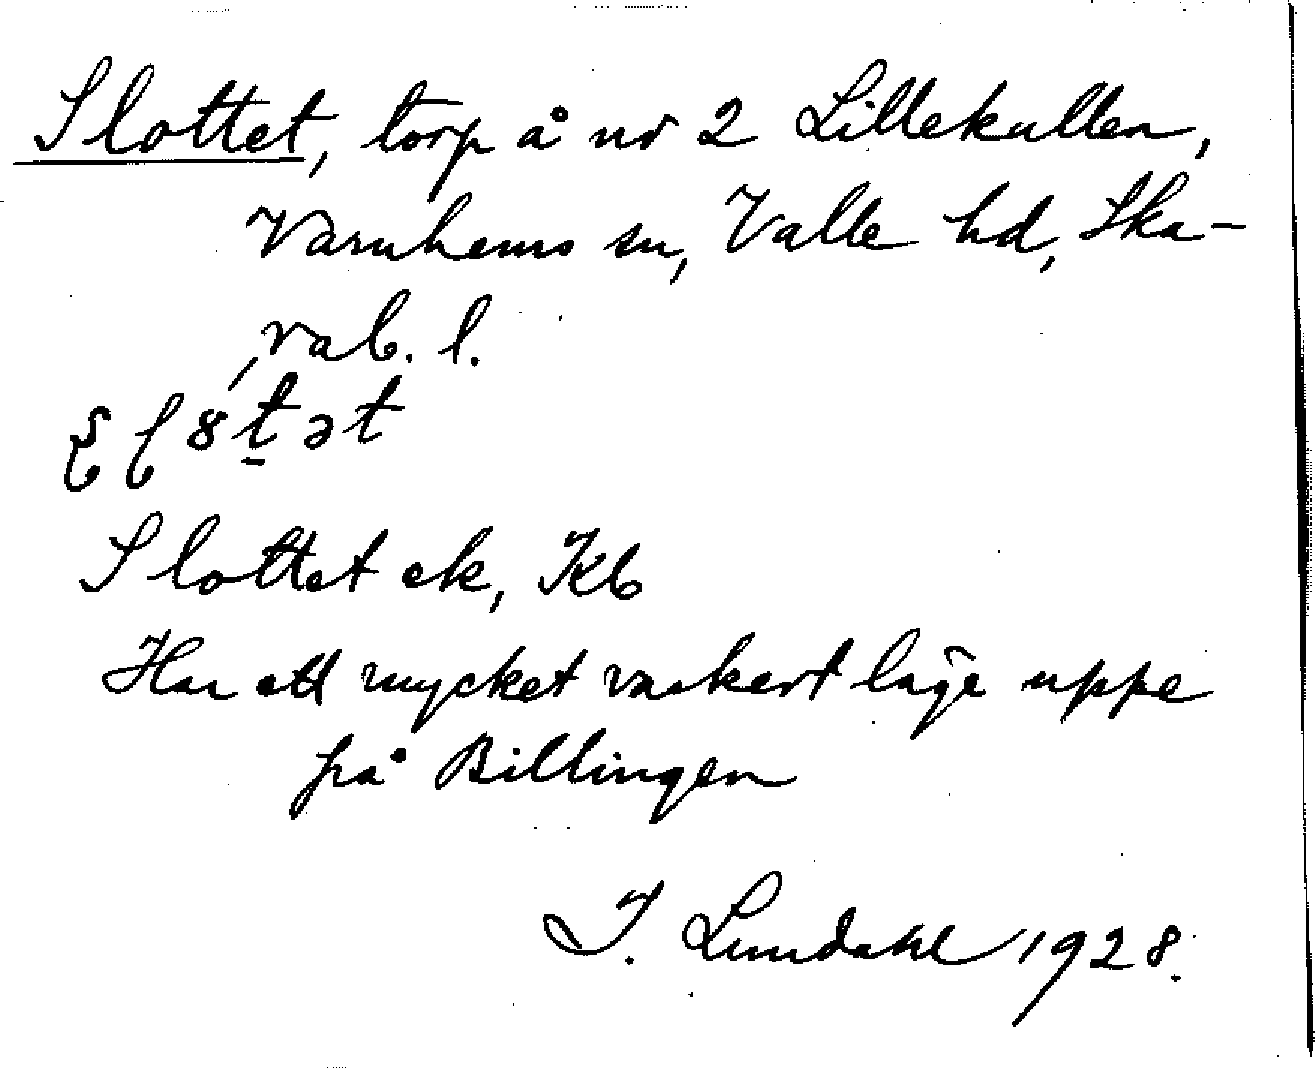 Slottet, torp å nr 2 Lillekullen,
Varnhems sn, Valle hd, Ska-
rab. l.
Slottet ek, Kb
Har ett mycket vackert läge uppe
på Billingen
I. Lundahl 1928.